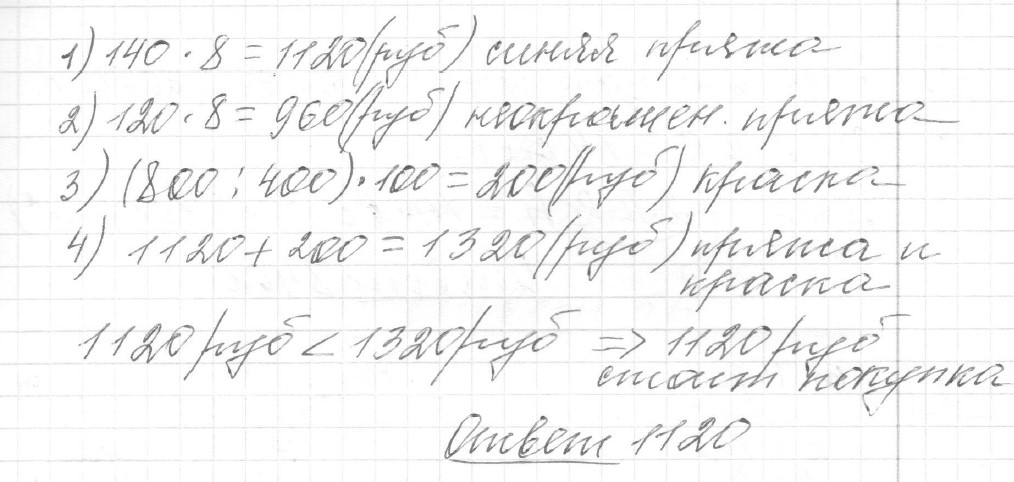 1) 140 · 8 = 1120 (руб) синяя пряжа
2) 120 · 8 = 960 (руб) неокрашен. пряжа
3) (800 : 400) · 100 = 200 (руб) краска
4) 1120 + 200 = 1320 (руб) пряжа и
краска
1120 руб < 1320 руб => 1120 руб
стоит покупка
Ответ 1120